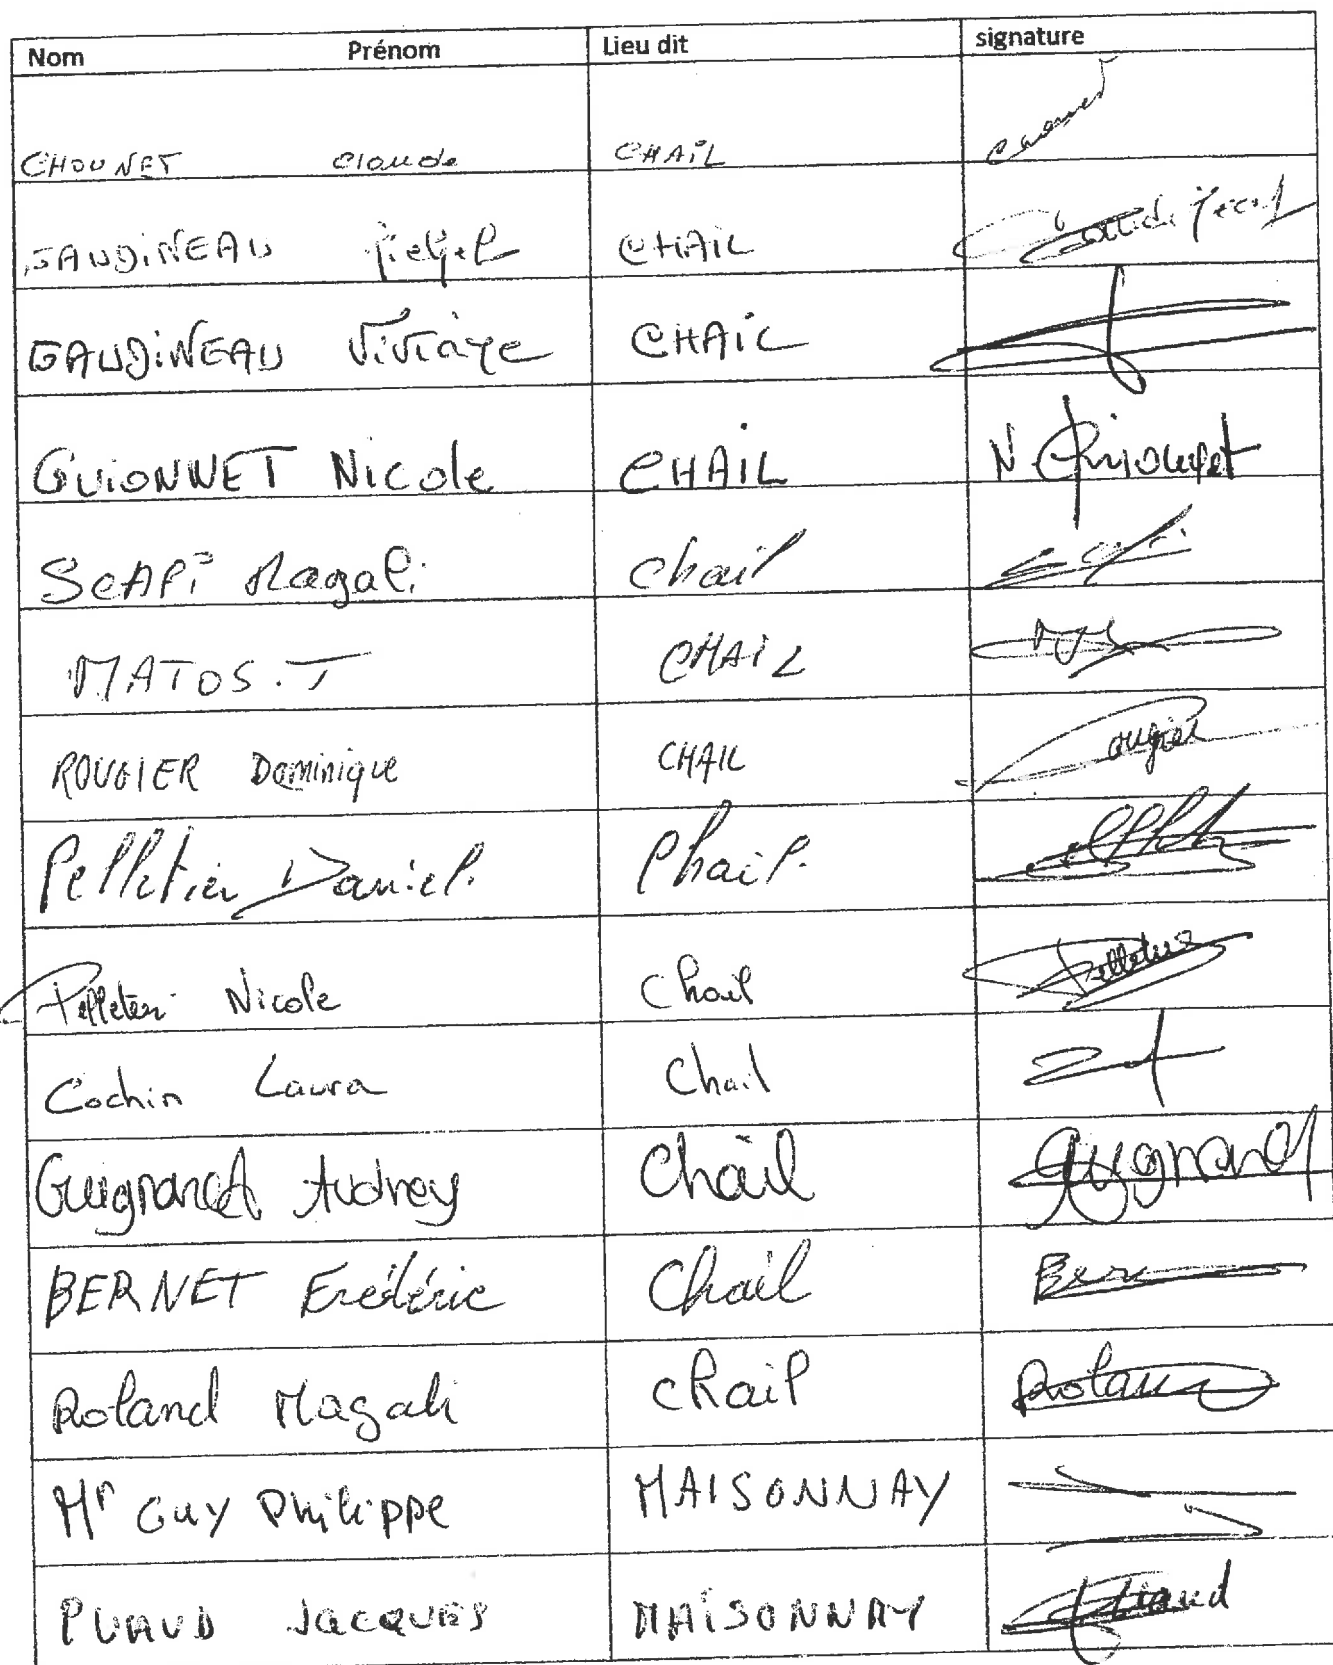 Nom Prénom Lieu dit signature
CHOUNET Claude CHAIL
GAUDINEAU CHAIL
GAUDINEAU Viviane CHAIL
GUIONNET Nicole CHAIL N. Guionnet
SCAPI Magali Chail
MATOS.T CHAIL
ROUGIER Dominique CHAIL Rougier
Pelletier Daniel. Chail.
Pelletier Nicole Chail Pelletier
Cochin Laura Chail
Guignard Audrey Chail Guignard
BERNET Frédéric Chail Ber
Roland Magali Chail Roland
Mr GUY Philippe MAISONNAY
PUAUD Jacques MAISONNAY Puaud